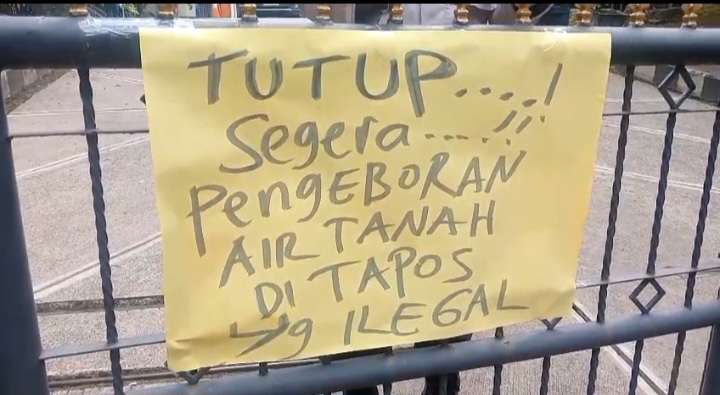 TUTUP....!
Segera.....!!
PengEBORAN
AIR TANAH
DI TAPOS
yg ILEGAL